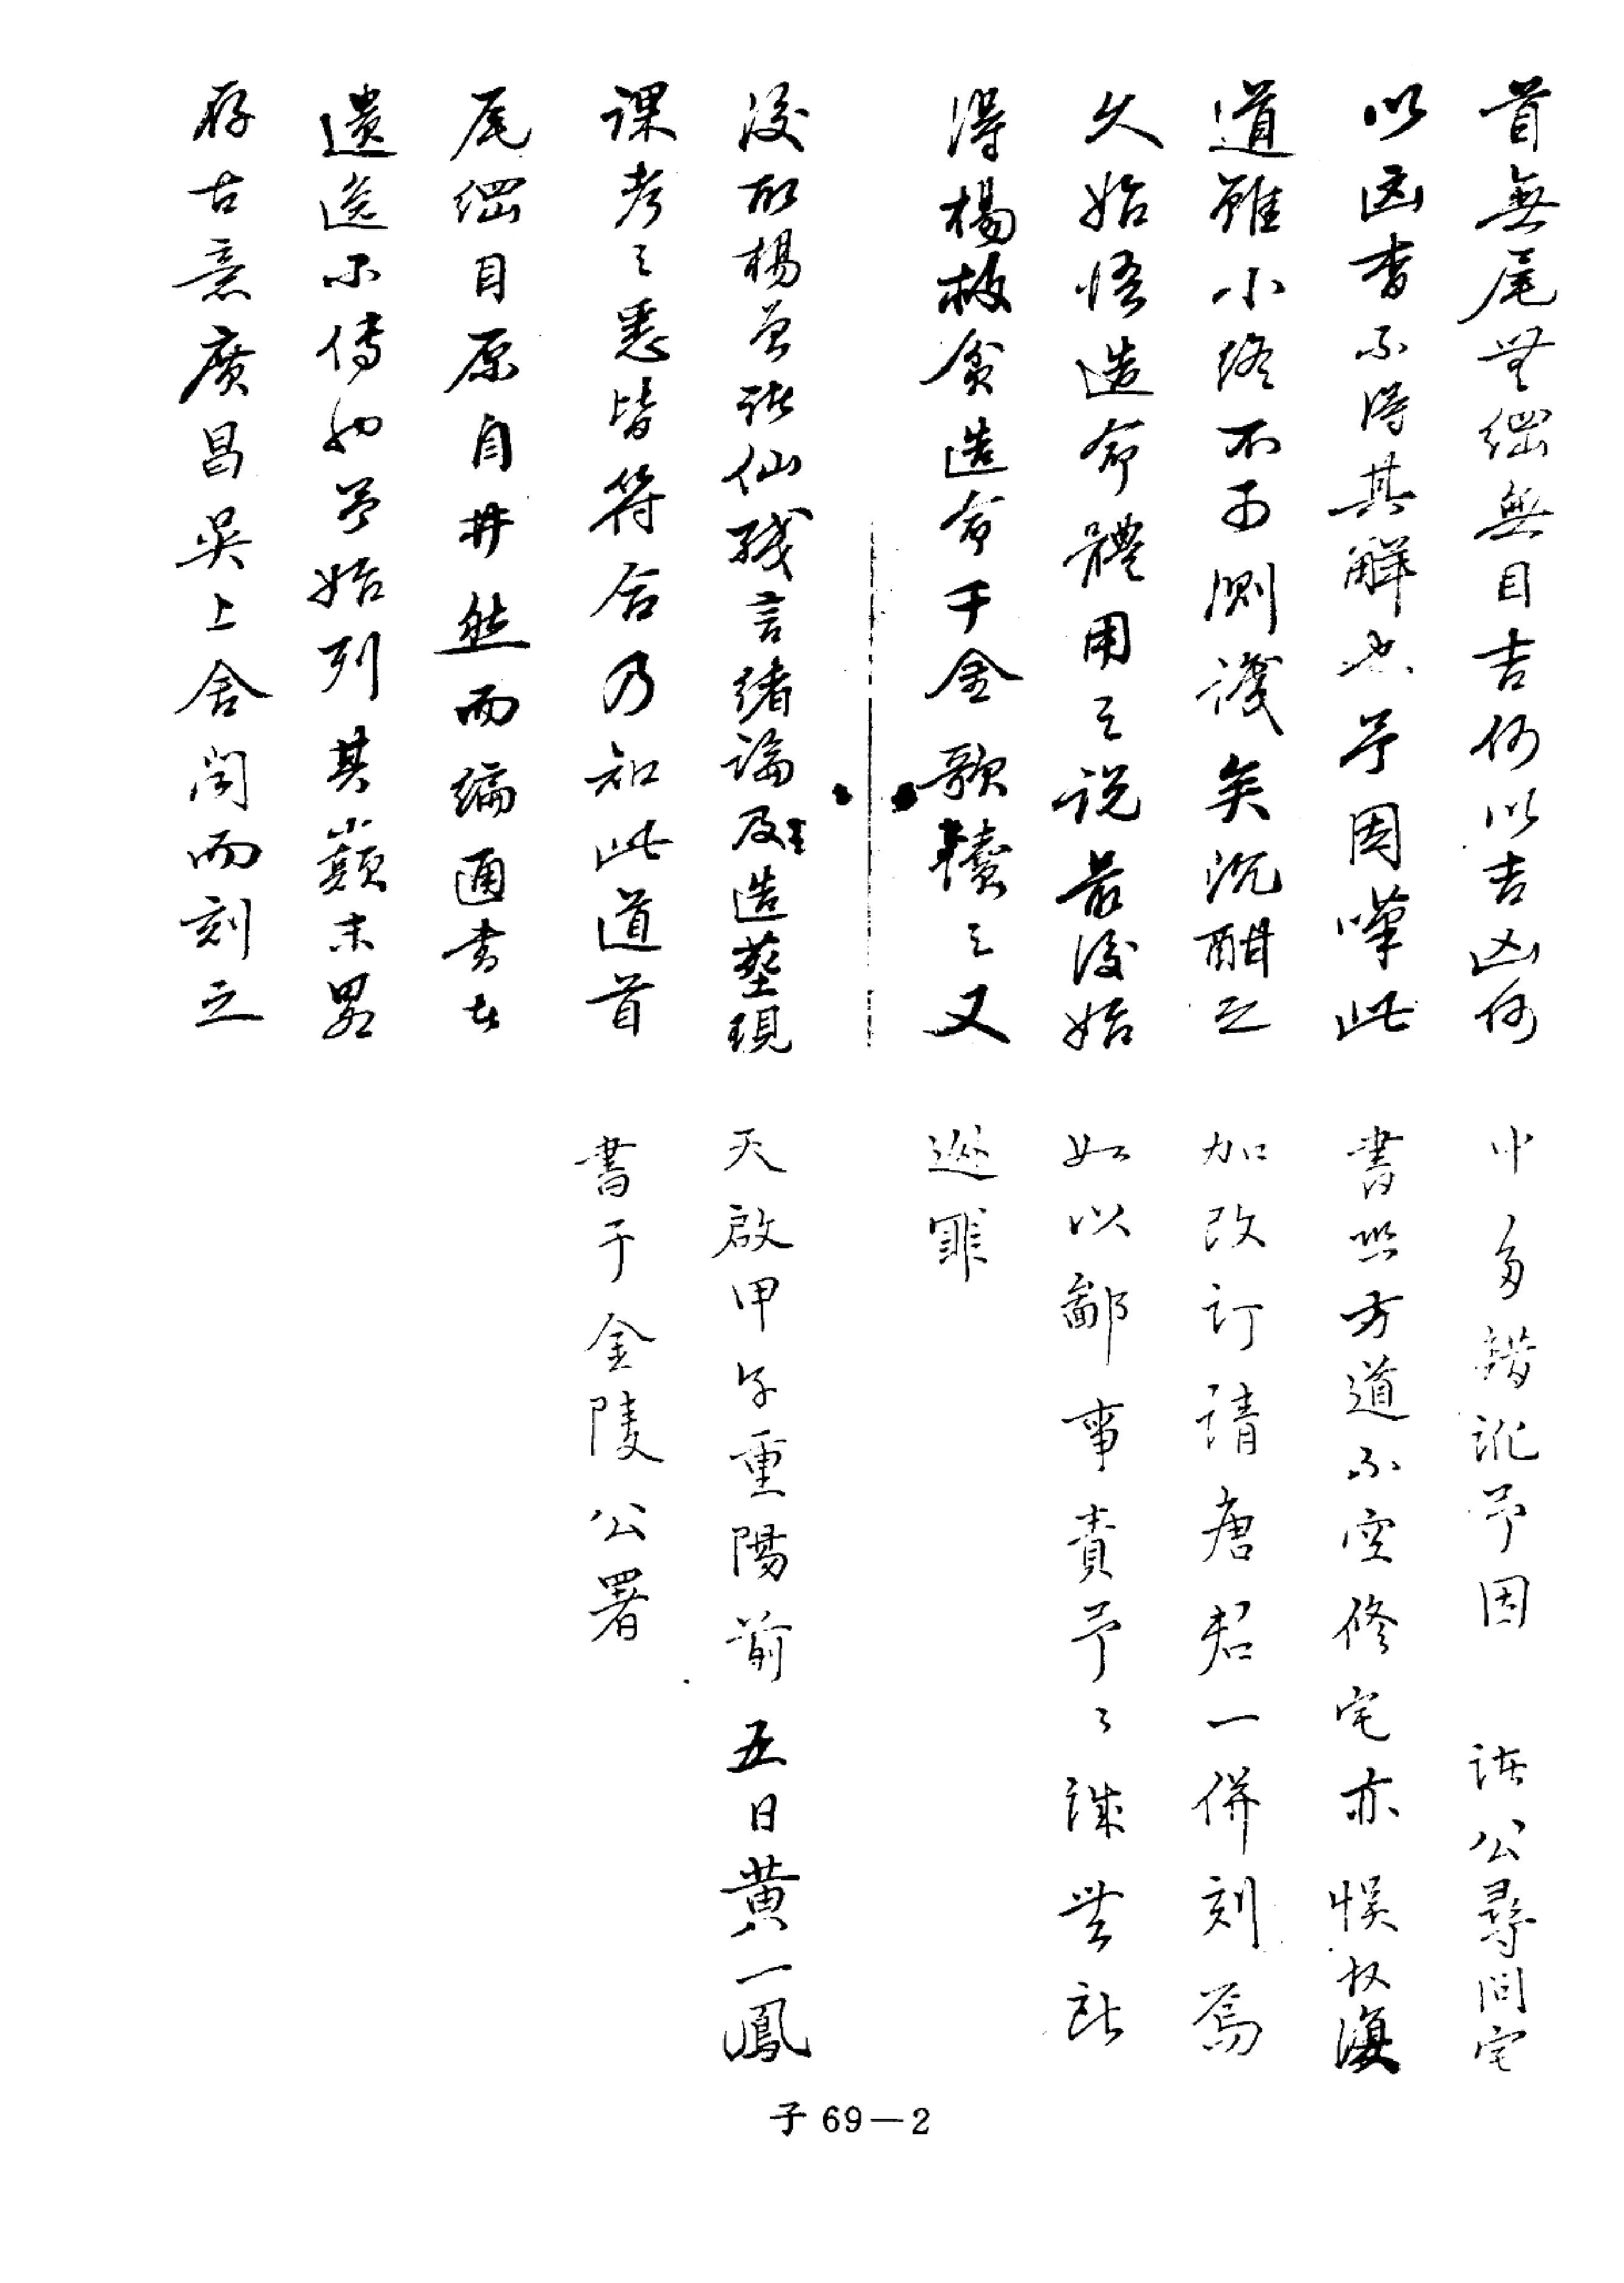 首無尾無綱無目吉何以吉凶何
以凶杳不得其解也予因嘆此
道雖小終不可測淺矣沉酣之
久始悟造命體用之說最後始
得楊救貧造命千金歌讀之又
後取楊曾諸仙殘言緒論及造塟現
課考之悉皆符合乃知此道首
尾綱目原自井然而編通書者
遺逸不傳也予始列其巔末畧
存古意廣昌吳上舍問而刻之
中多錯訛予因 諸公尋問宅
書照方道不空修宅亦悞故復
加改訂請唐君一併刻焉
如以鄙事責予予誠無所
逃罪
天啟甲子重陽前五日黃一鳳
書于金陵公署
子69—2